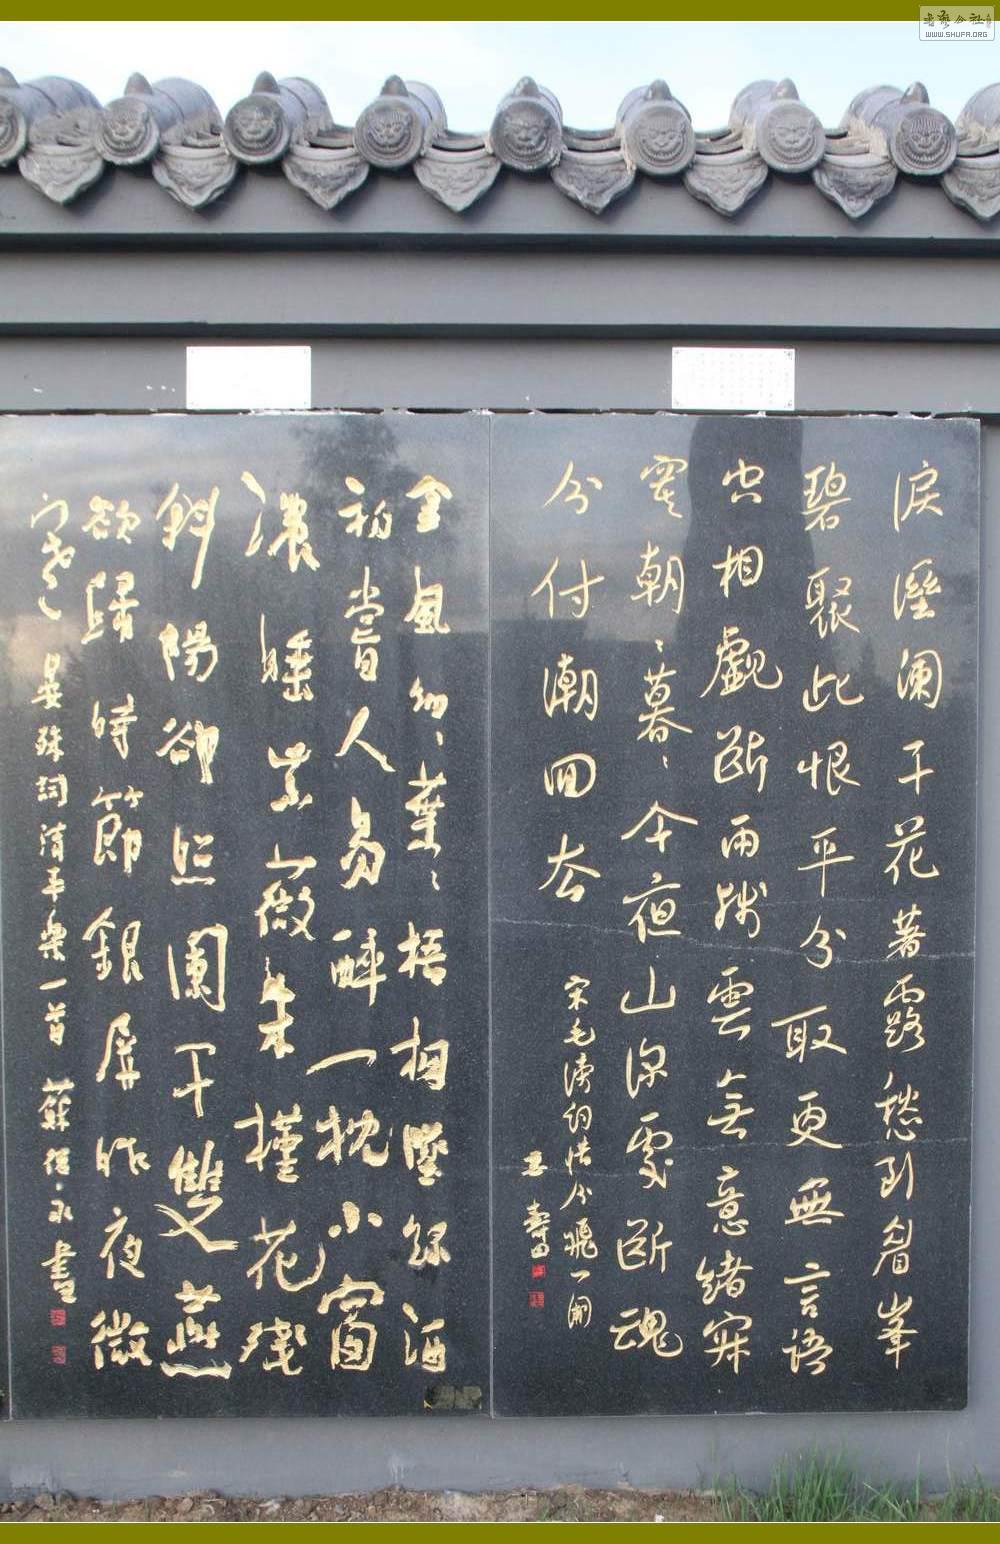 书艺公社
WWW.SHUFA.ORG
淚溼阑干花著露愁到眉峯
碧聚此恨平分取更無言語
空相覷斷雨殘雲無意緒寂
寞朝々暮々今夜山深處斷魂
分付潮回去
宋毛滂詞惜分飛一闋
金風細々葉々梧桐墜綠酒
初嘗人易醉一枕小窗
濃睡紫薇朱槿花殘
斜陽卻照闌干雙燕
欲歸時節銀屏昨夜微
寒 晏殊詞清平樂一首 蘇永書